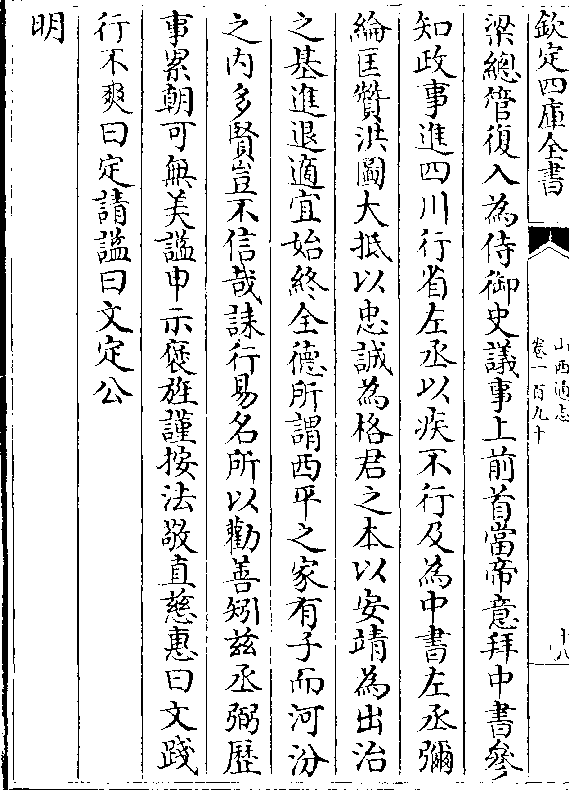 欽定四庫全書
山西通志
卷一百九十
十八
梁總管復入為侍御史議事上前首當帝意拜中書參
知政事進四川行省左丞以疾不行及為中書左丞彌
綸匡贊洪圖大抵以忠誠為格君之本以安靖為出治
之基進退適宜始終全德所謂西平之家有子而河汾
之内多賢豈不信哉誄行易名所以勸善矧兹丞弼歷
事累朝可無美謚申示褒旌謹按法敬直慈惠曰文踐
行不爽曰定請謚曰文定公
明